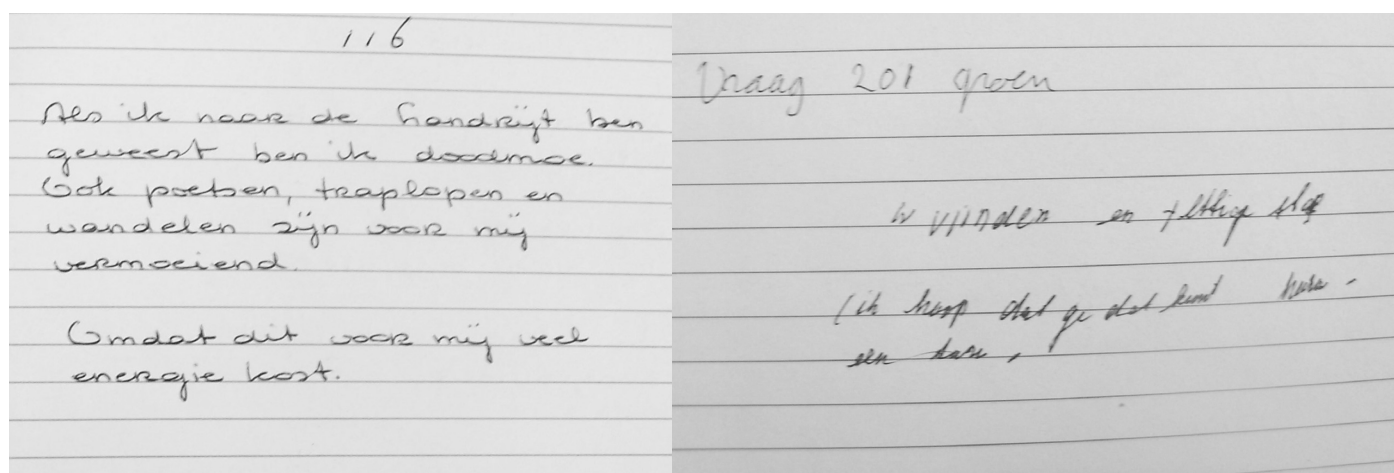 116
Als ik naar de handrijt ben
geweest ben ik doodmoe.
Ook poetsen, traplopen en
wandelen zijn voor mij
vermoeiend.
Omdat dit voor mij veel
energie kost.
Vraag 201 groen
vijnden en
(ik hoop dat ge dat kunt
een